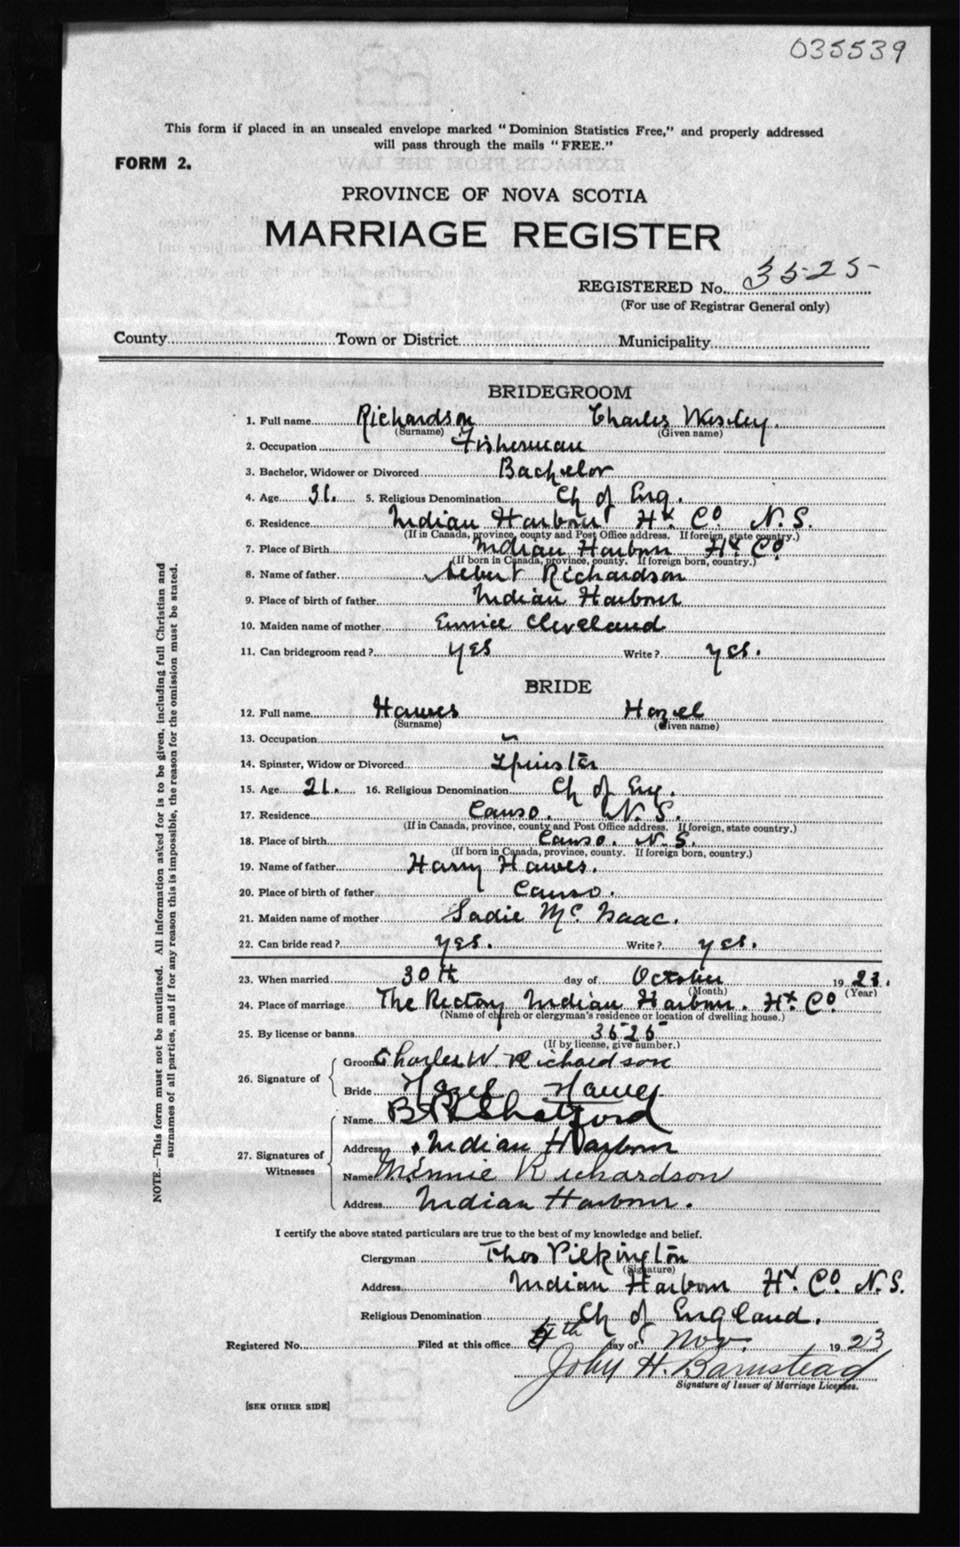 035539
This form if placed in an unsealed envelope marked "Dominion Statistics Free," and properly addressed
will pass through the mails "FREE."
FORM 2.
PROVINCE OF NOVA SCOTIA
MARRIAGE REGISTER
REGISTERED No. 3525
(For use of Registrar General only)
County Town or District Municipality
BRIDEGROOM
1. Full name Richardson Charles Wesley.
(Surname) (Given name)
2. Occupation Fisherman
3. Bachelor, Widower or Divorced Bachelor
4. Age 31. 5. Religious Denomination Ch of Eng.
6. Residence Indian Harbour Hx Co N.S.
(If in Canada, province, county and Post Office address. If foreign, state country.)
7. Place of Birth Indian Harbour Hx Co
(If born in Canada, province, county. If foreign born, country.)
8. Name of father Richardson
9. Place of birth of father Indian Harbour
10. Maiden name of mother Eunice Cleveland
11. Can bridegroom read? yes Write? yes.
BRIDE
12. Full name Hawes Hazel
(Surname) (Given name)
13. Occupation
14. Spinster, Widow or Divorced Spinster
15. Age 21. 16. Religious Denomination Ch of Eng.
17. Residence Canso. N.S.
(If in Canada, province, county and Post Office address. If foreign, state country.)
18. Place of birth Canso. N.S.
(If born in Canada, province, county. If foreign born, country.)
19. Name of father Harry Hawes.
20. Place of birth of father Canso.
21. Maiden name of mother Sadie McIsaac.
22. Can bride read? yes. Write? yes.
23. When married 30th day of October 1923.
(Month) (Year)
24. Place of marriage The Rectory Indian Harbour. Hx Co
(Name of church or clergyman's residence or location of dwelling house.)
25. By license or banns 3525
(If by license, give number.)
26. Signature of
Groom Charles W. Richardson
Bride Hazel Hawes
27. Signatures of Witnesses
Name B Shatford
Address Indian Harbour
Name Minnie Richardson
Address Indian Harbour.
I certify the above stated particulars are true to the best of my knowledge and belief.
Clergyman Thos Pilkington
(Signature)
Address Indian Harbour Hx. Co N.S.
Religious Denomination Ch of England.
Registered No. Filed at this office day of Nov. 1923
John H. Barnstead
Signature of Issuer of Marriage Licenses.
[SEE OTHER SIDE]
NOTE.—This form must not be mutilated. All information asked for is to be given, including full Christian and
surnames of all parties, and if for any reason this is impossible, the reason for the omission must be stated.